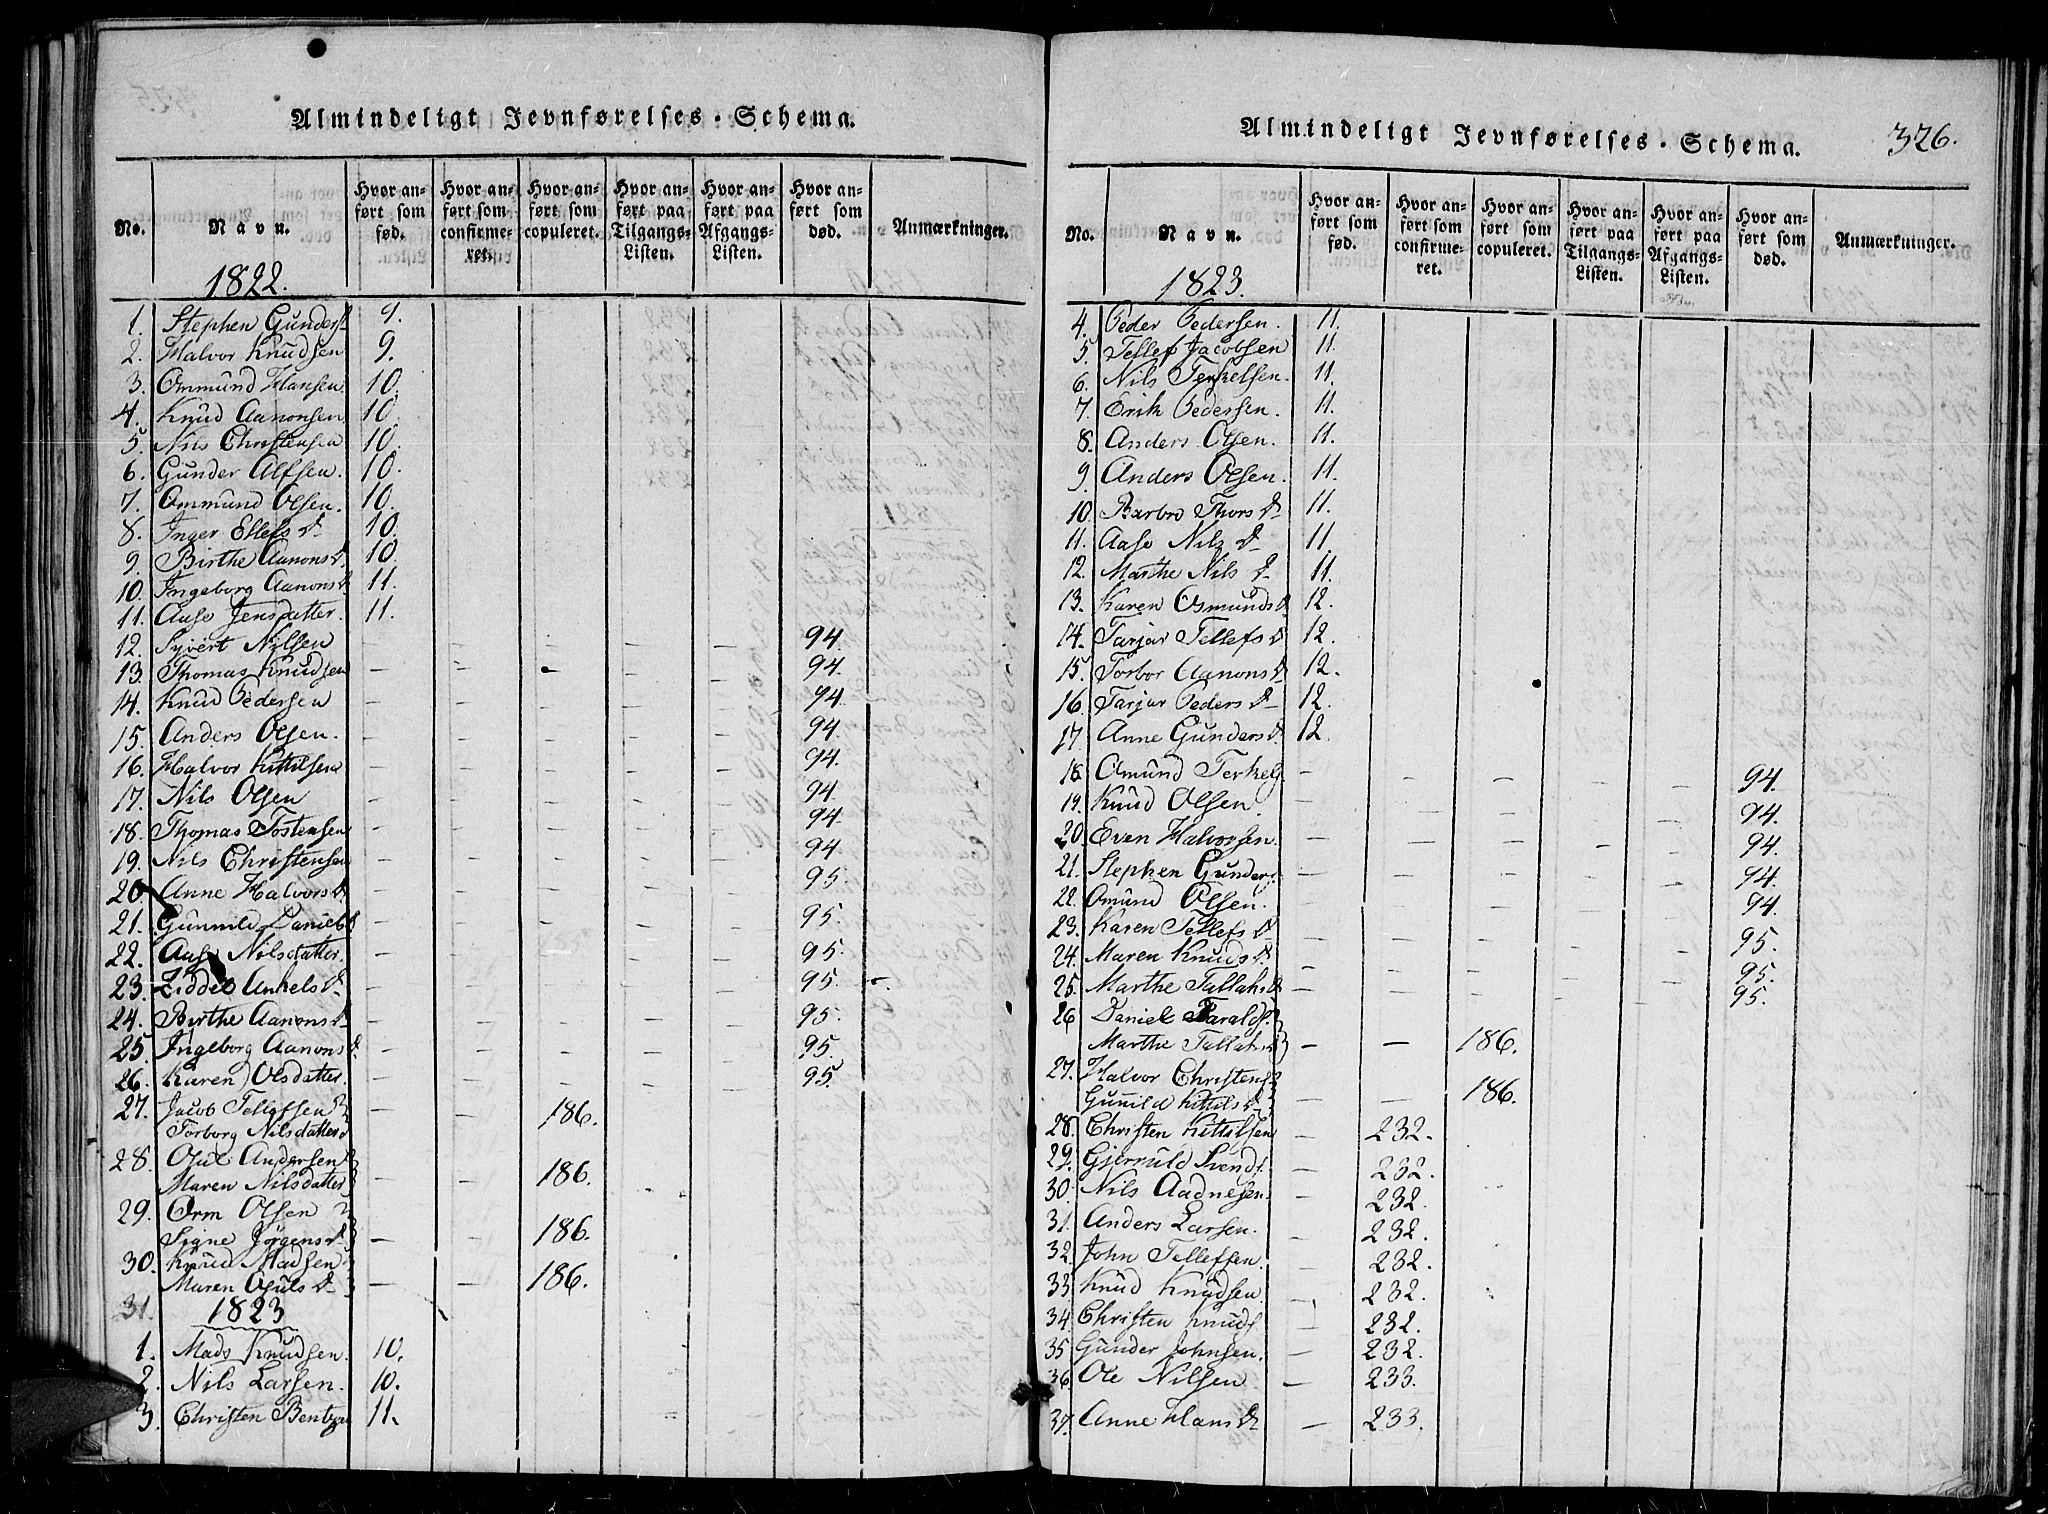 Almindeligt Jevnførelses-Schema.
No.
Navn.
Hvor anført som fød.
Hvor anført som confirmeret.
Hvor anført som copuleret.
Hvor anført paa Tilgangs-Listen.
Hvor anført paa Afgangs-Listen.
Hvor anført som død.
Anmærkninger.
1822.
1. Stephen Gunders 9.
2. Halvor Knudsen 9.
3. Ommund Hansen 10.
4. Knud Aanonsen 10.
5. Nils Christensen 10.
6. Gunder Alfsen. 10.
7. Ommund Olsen. 10.
8. Inger Ellefs D 10.
9. Birthe Aanons D. 10.
10. Ingeborg Aanons D 11.
11. Aase Jensdatter. 11.
12. Syvert Nilsen – – – – – 94.
13. Thomas Knudsen – – – – – 94.
14. Knud Pedersen – – – – – 94.
15. Anders Olsen. – – – – – 94.
16. Halvor Kittilsen – – – – – 94.
17. Nils Olsen – – – – – 94.
18. Thomas Tostensen – – – – – 94.
19. Nils Christensen – – – – – 94.
20. Anne Halvors D – – – – – 95.
21. Gunnild Daniels D – – – – – 95.
22. Aase Nilsdatter. – – – – – 95.
23. Ziddel Ankels D – – – – – 95. –.
24. Birthe Aanons D – – – – – 95.
25. Ingeborg Aanons D. – – – – – 95.
26. Karen Olsdatter. – – – – – 95.
27. Jacob Tellefsen
Torborg Nilsdatter – – 186.
28. Ojul Andersen
Maren Nilsdatter – – 186.
29. Orm Olsen
Signe Jørgens D – – 186.
30. Knud Madsen
Maren Ojuls D – – 186.
31. 1823
1. Mads Knudsen. 10.
2. Nils Larsen. 10.
3. Christen Bentzen 11.
Almindeligt Jevnførelses-Schema. 326.
No.
Navn.
Hvor anført som fød.
Hvor anført som confirmeret.
Hvor anført som copuleret.
Hvor anført paa Tilgangs-Listen.
Hvor anført paa Afgangs-Listen.
Hvor anført som død.
Anmærkninger.
1823.
4. Peder Pedersen. 11.
5. Tellef Jacobsen 11.
6. Nils Terkelsen. 11.
7. Erik Pedersen. 11.
8. Anders Olsen. 11.
9. Anders Olsen. 11.
10. Barbro Thors D 11.
11. Aase Nils D 11.
12. Marthe Nils D 11.
13. Karen Osmunds D 12.
14. Tarjar Tellefs D 12.
15. Torbor Aanons D 12.
16. Tarjar Peders D 12.
17. Anne Gunders D. 12.
18. Omund Terkels – – – – – 94.
19. Knud Olsen – – – – – 94.
20. Even Halvorsen. – – – – – 94.
21. Stephen Gunders – – – – – 94.
22. Omund Olsen. – – – – – 94.
23. Karen Tellefs D – – – – – 95.
24. Maren Knuds D. – – – – – 95.
25. Marthe Tallaks D – – – – – 95.
26 Daniel Haralds.
Marthe Tallaks D – – 186.
27. Halvor Christens
Gunnild Kittils D – – 186.
28. Christen Kittilsen – 232.
29. Gjerruld Svends. – 232.
30. Nils Aadnesen. – 232.
31. Anders Larsen. – 232.
32. John Tellefsen. – 232.
33. Knud Knudsen. – 232.
34 Christen Knuds – 232.
35 Gunder Johnsen. – 232.
36. Ole Nilsen – 233.
37. Anne Hans D – 233.